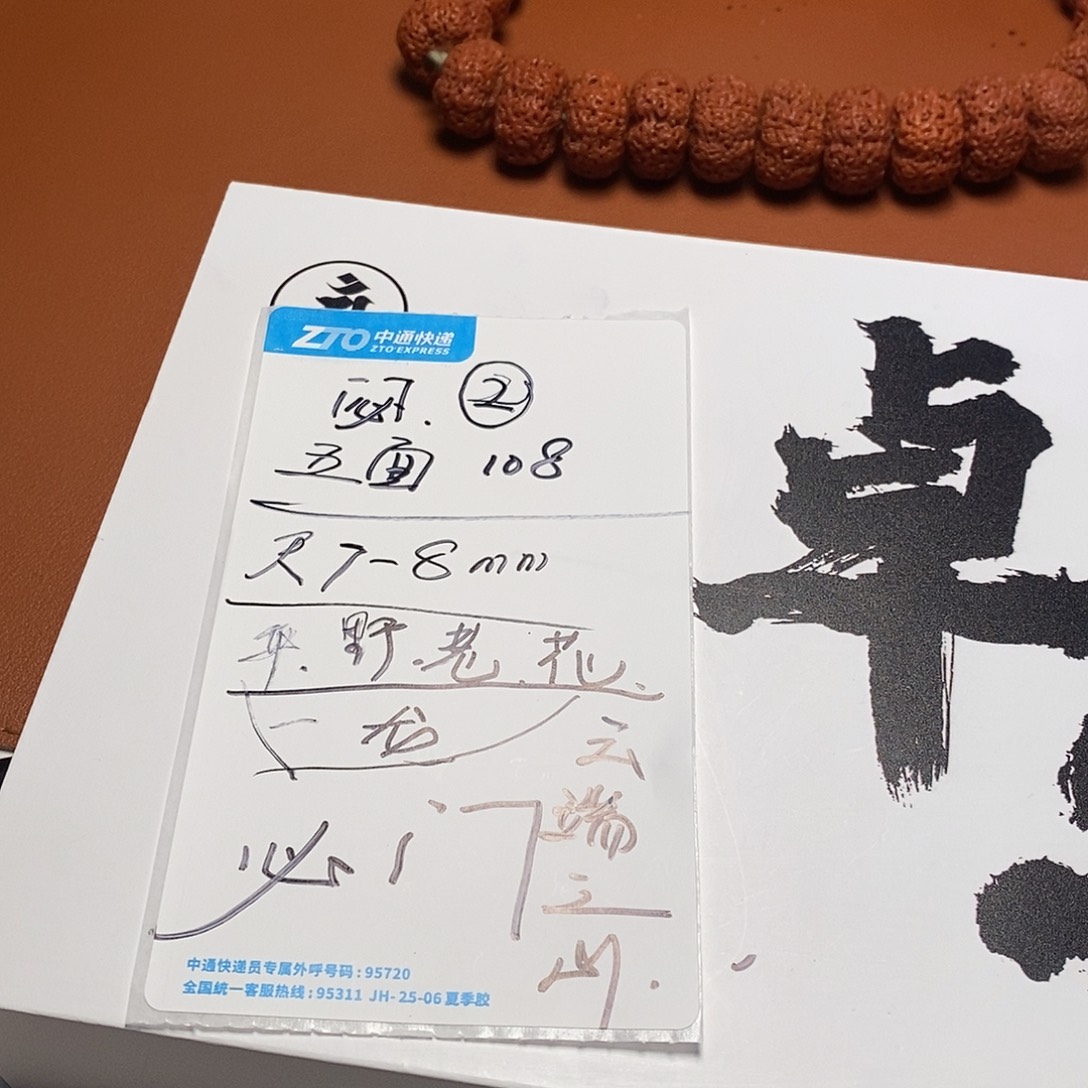 ZTO 中通快递
ZTO EXPRESS
闷. ②
五面 108
尺7-8mm
野.老.
一龙
云端之
必
门
中通快递员专属外呼号码:95720
全国统一客服热线:95311 JH-25-06夏季胶
卓